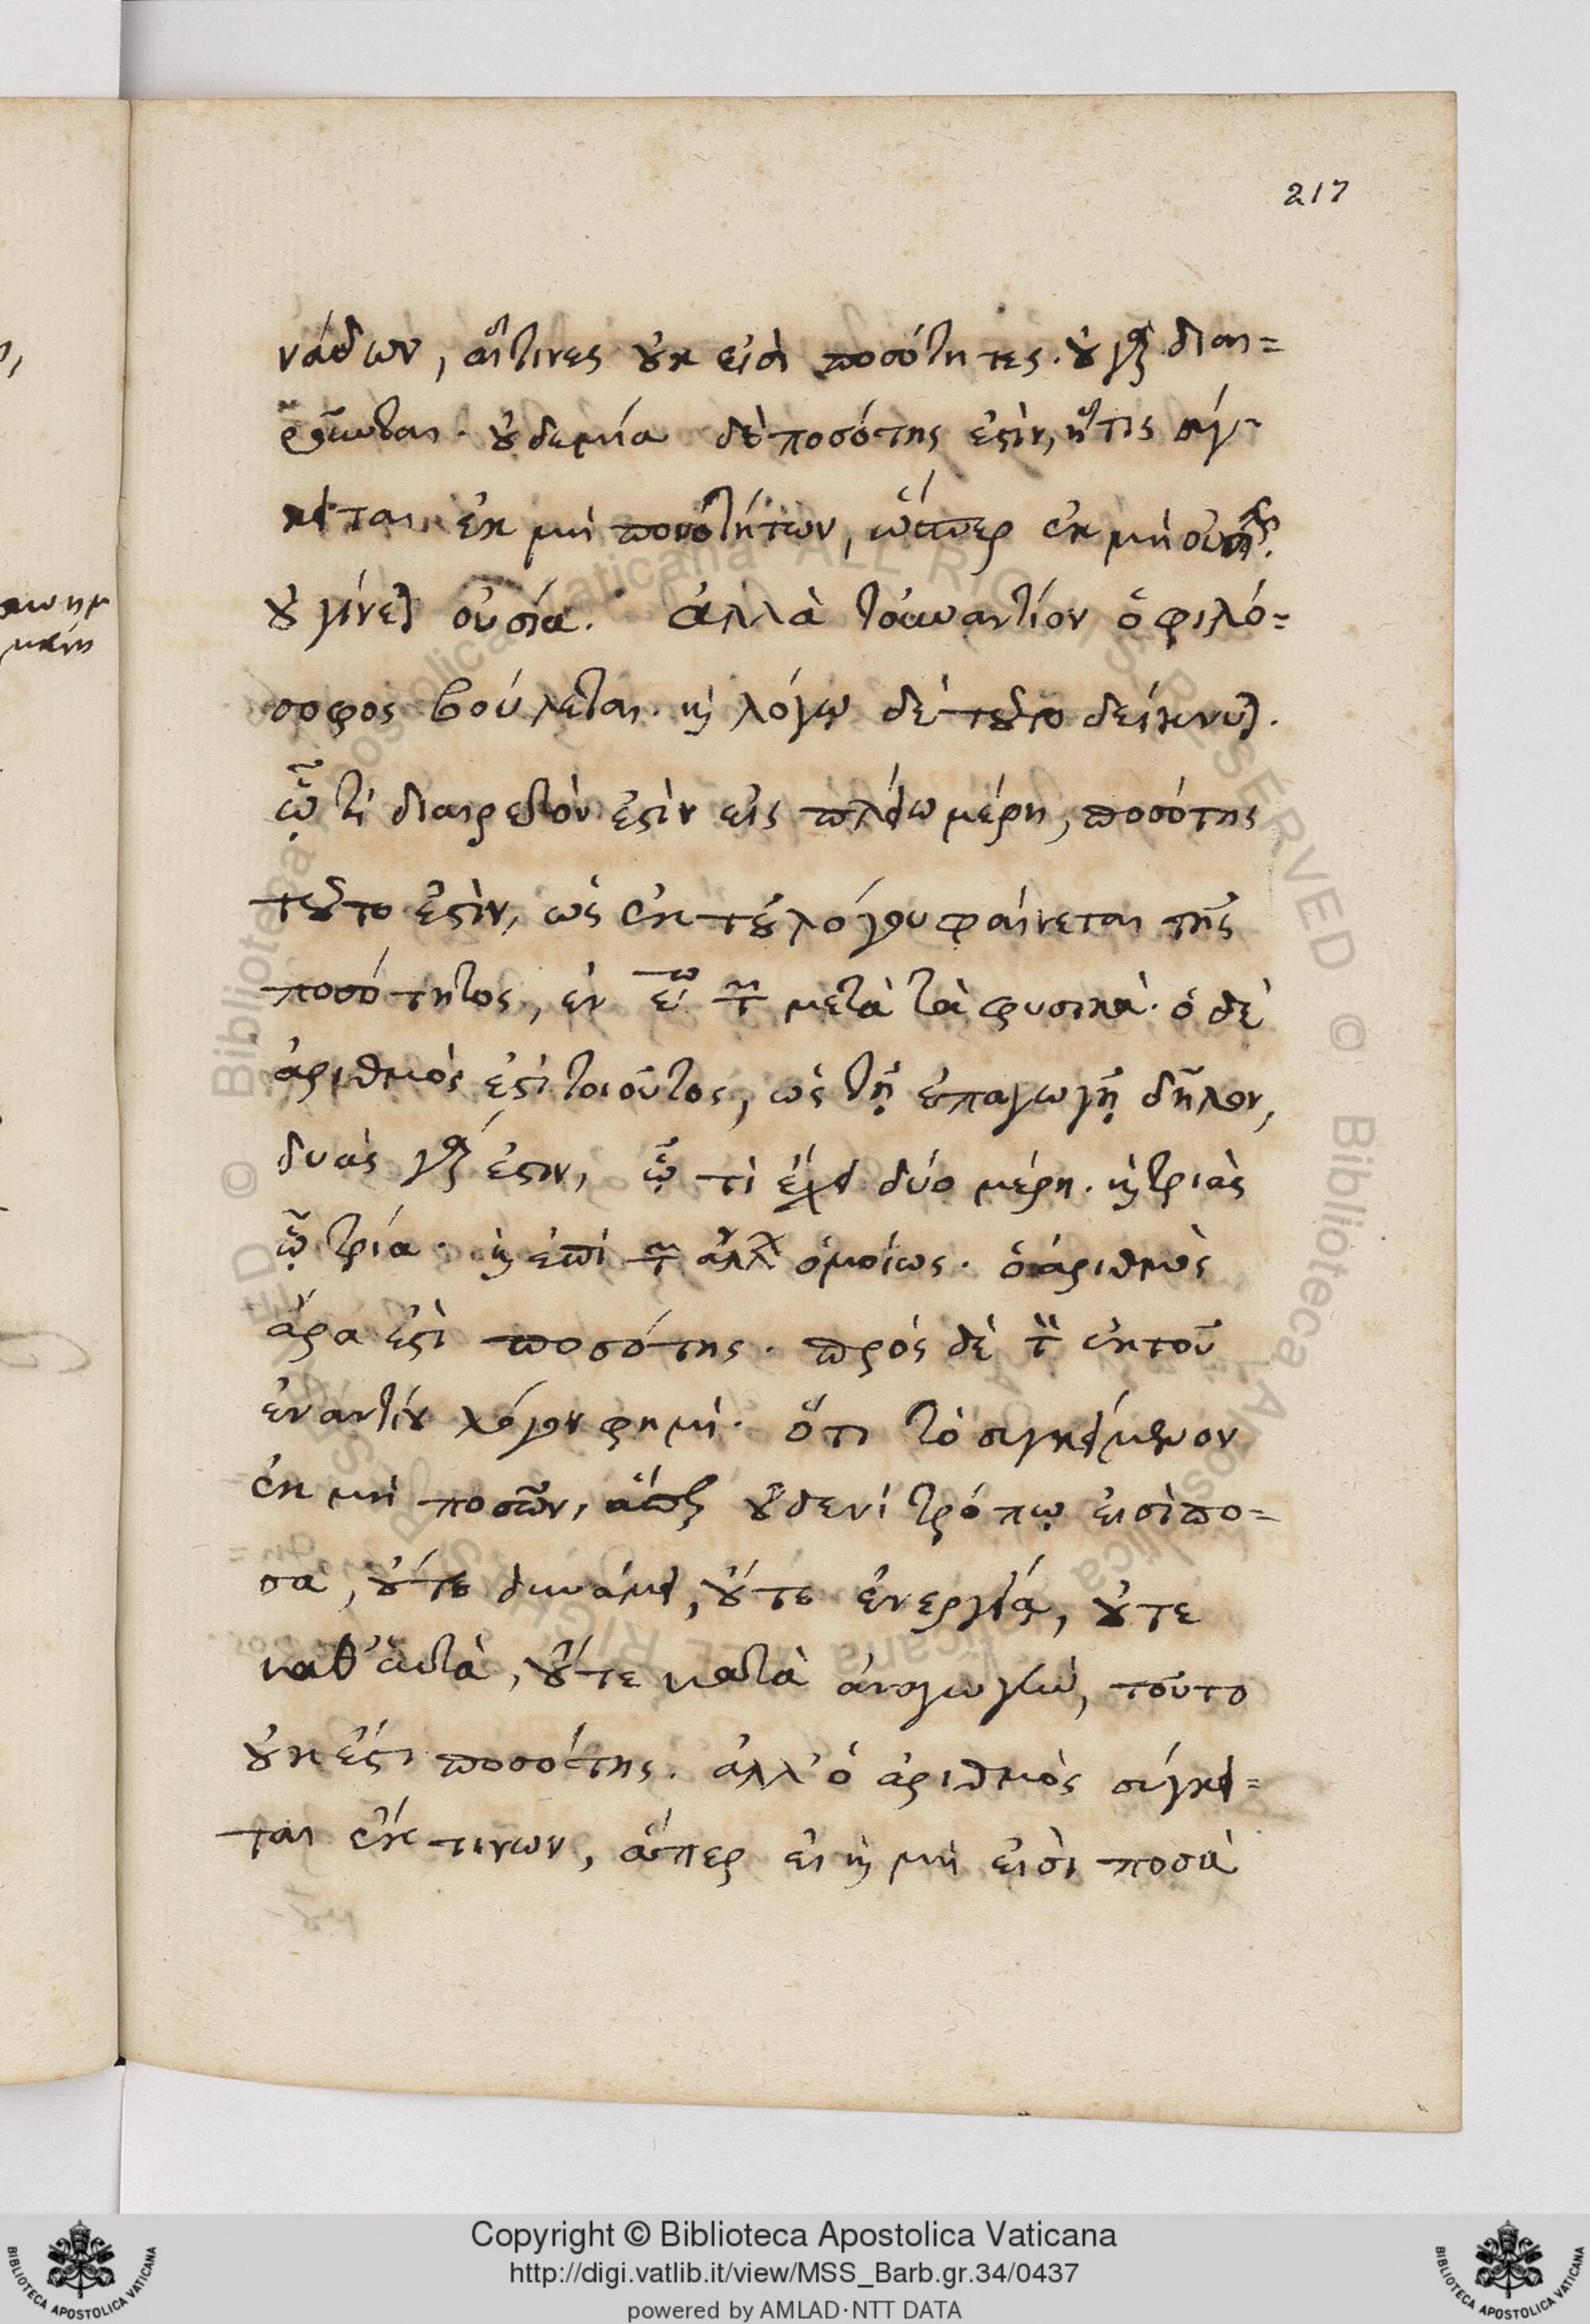 217
νάδων, αἵτινες οὐκ εἰσὶ ποσότητες. οὐ γὰρ διαι=
ροῦνται. οὐδεμία δὲ ποσότης ἐστὶν, ἥτις σύγ-
κειται ἐκ μὴ ποσοτήτων, ὥσπερ ἐκ μὴ οὐσιῶν.
οὐ γίνεται οὐσία. ἀλλὰ τοὐναντίον ὁ φιλό=
σοφος βούλεται. καὶ λόγῳ δὲ τοῦτο δείκνυται.
ᾧ τι διαιρετὸν ἐστὶν εἰς πλείω μέρη, ποσότης
τοῦτο ἐστὶν, ὡς ἐκ τοῦ λόγου φαίνεται τῆς
ποσότητος, ἐν εʹ τῶν μετὰ τὰ φυσικά. ὁ δὲ
ἀριθμὸς ἐστὶ τοιοῦτος, ὡς τῇ ἐπαγωγῇ δῆλον,
δυὰς γάρ ἐστιν, ᾧ τι ἔχει δύο μέρη. καὶ τριὰς
ᾧ τρία. καὶ ἐπὶ τῶν ἄλλων ὁμοίως. ὁ ἀριθμὸς
ἄρα ἐστὶ ποσότης. πρὸς δὲ τὸν ἐκ τοῦ
ἐναντίου λόγον φημὶ. ὅτι τὸ συγκείμενον
ἐκ μὴ ποσῶν, ἅπερ οὐδενὶ τρόπῳ εἰσὶ πο=
σὰ, οὔτε δυνάμει, οὔτε ἐνεργείᾳ, οὔτε
καθ' αὑτὰ, οὔτε κατὰ ἀναγωγὴν, τοῦτο
οὐκ ἔστι ποσότης. ἀλλ' ὁ ἀριθμὸς σύγκει=
ται ἔκ τινων, ἅπερ εἰ καὶ μὴ εἰσὶ ποσὰ
Copyright © Biblioteca Apostolica Vaticana
http://digi.vatlib.it/view/MSS_Barb.gr.34/0437
powered by AMLAD·NTT DATA